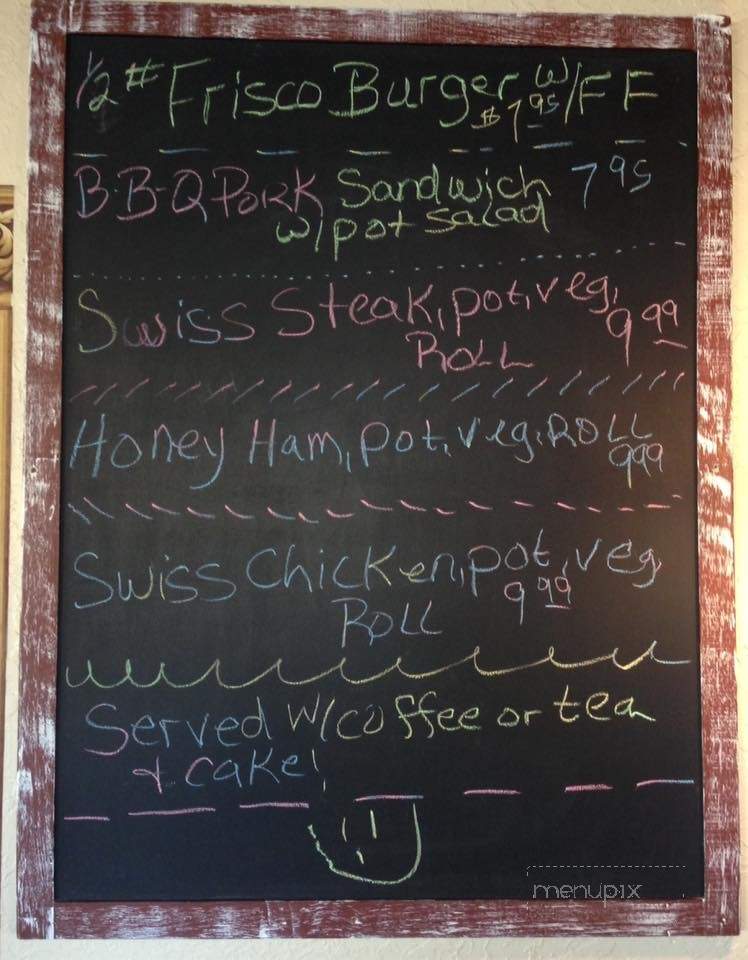 1/2 # Frisco Burger w/FF
$7.95
B-B-Q Pork Sandwich 7 95
w/pot salad
Swiss Steak, pot, veg,
Roll 9 99
Honey Ham, pot, veg, Roll
9 99
Swiss Chicken, pot, veg
9 99
Roll
Served w/coffee or tea
& cake!
menupix